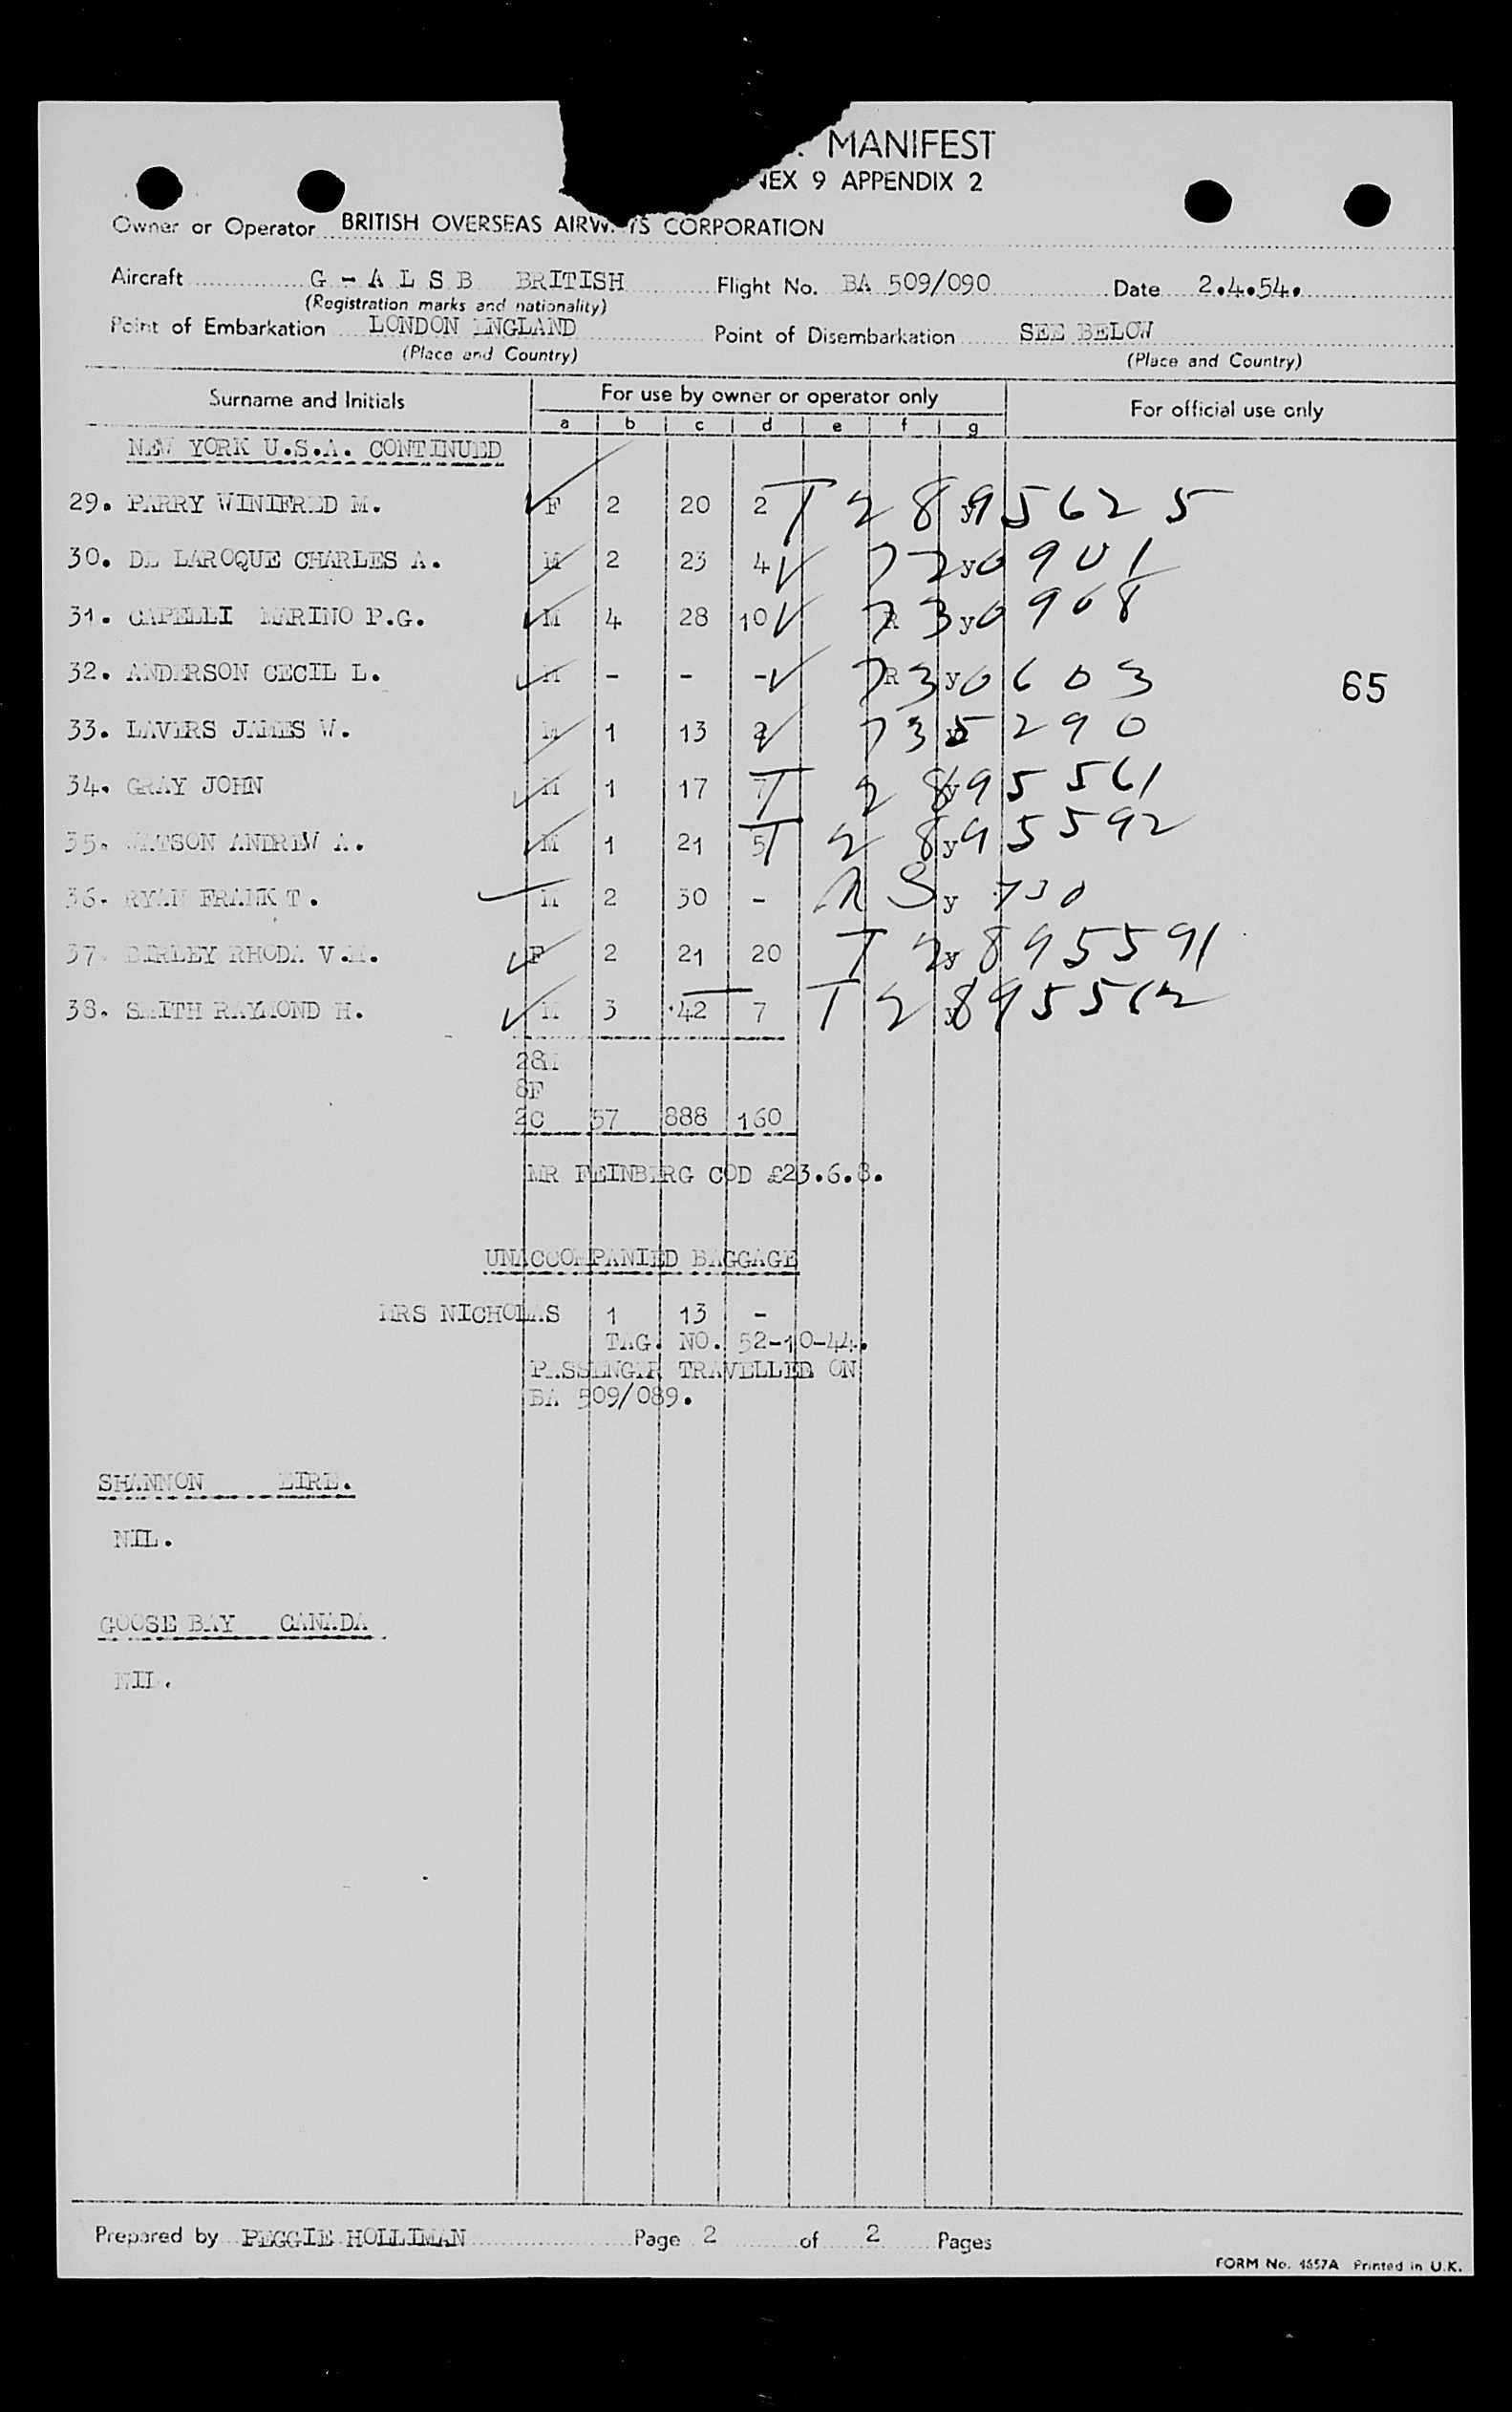 MANIFEST
NEX 9 APPENDIX 2
Owner or Operator BRITISH OVERSEAS AIRWAYS CORPORATION
Aircraft G - A L S B BRITISH Flight No. BA 509/090 Date 2.4.54.
(Registration marks and nationality)
Point of Embarkation LONDON ENGLAND Point of Disembarkation SEE BELOW
(Place and Country) (Place and Country)
Surname and Initials For use by owner or operator only For official use only
a b c d e f g
NEW YORK U.S.A. CONTINUED
29. PARRY WINIFRED M. F 2 20 2 y T 2895625
30. DE LAROQUE CHARLES A. M 2 23 4 y 720901
31. CAPELLI MARINO P.G. M 4 28 10 R y 730968
32. ANDERSON CECIL L. M - - - R y 730603
33. LAVERS JAMES W. M 1 13 2 y 735290
34. GRAY JOHN M 1 17 7 y T 2895561
35. WATSON ANDREW A. M 1 21 5 y T 2895592
36. RYAN FRANK T. M 2 30 - y 730
37. BIRLEY RHODA V.M. F 2 21 20 y T 2895591
38. SMITH RAYMOND H. M 3 42 7 y T 2895562
65
28M
8F
2C 57 888 160
MR FEINBERG COD £23.6.8.
UNACCOMPANIED BAGGAGE
MRS NICHOLAS 1 13 -
TAG. NO. 52-10-44.
PASSENGER TRAVELLED ON
BA 509/089.
SHANNON EIRE.
NIL.
GOOSE BAY CANADA
NIL.
Prepared by PEGGIE HOLLIMAN Page 2 of 2 Pages
FORM No. 4657A Printed in U.K.